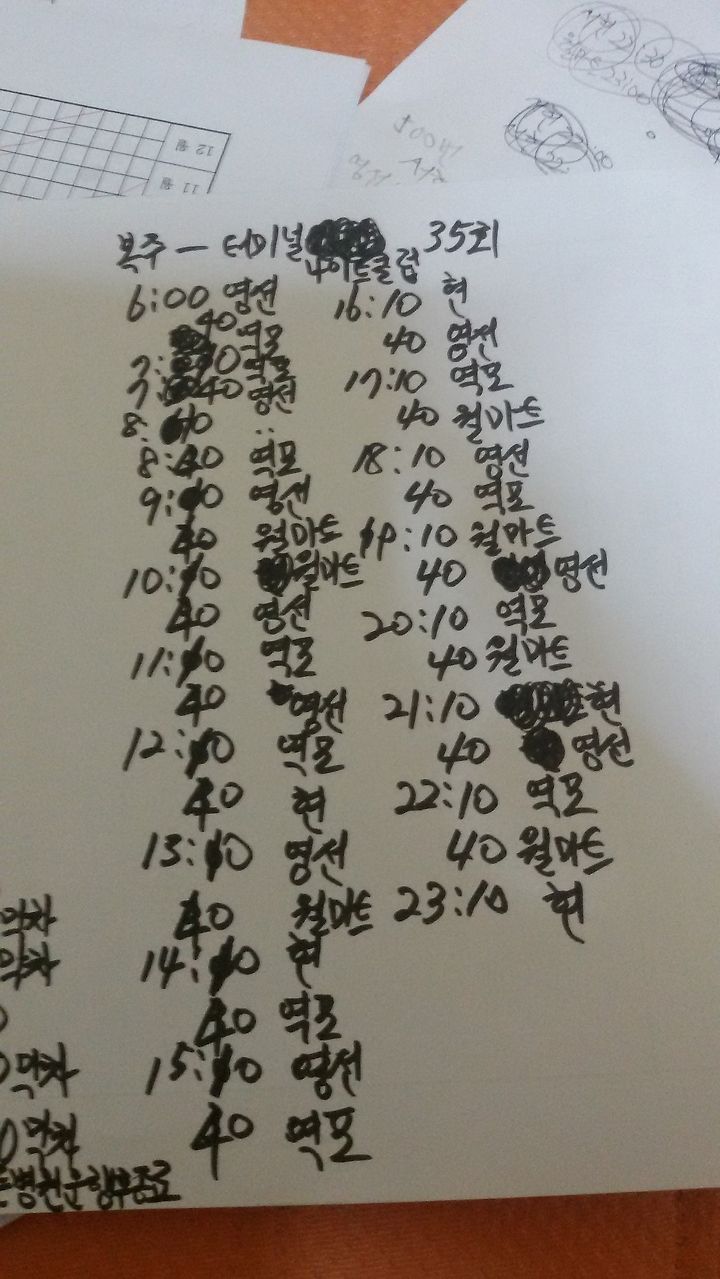 12월
11월
복주 — 터미널 35회
나이트클럽
6:00 영선
40 역모
7:10 역모
7:40 영선
8:10 :
8:40 역모
9:10 영선
40 월마트
10:10 월마트
40 영선
11:10 역모
40 영선
12:10 역모
40 현
13:10 영선
40 월마트
14:10 현
40 역모
15:10 영선
40 역모
16:10 현
40 영선
17:10 역모
40 월마트
18:10 영선
40 역모
19:10 월마트
40 영선
20:10 역모
40 월마트
21:10 현
40 영선
22:10 역모
40 월마트
23:10 현
막차
막차
막차
막차
병원운행후종료